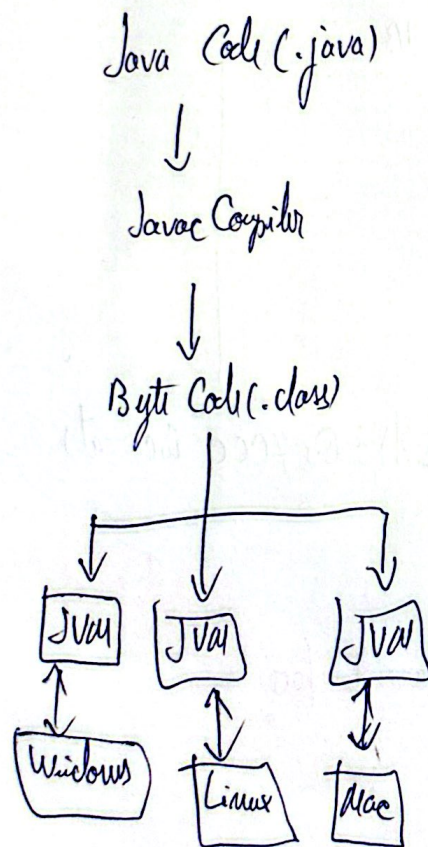 Java Code (.java)
Javac Compiler
Byte Code (.class)
JVM JVM JVM
Windows Linux Mac